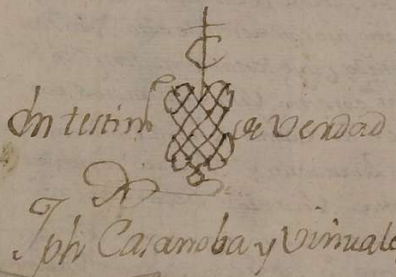 En testim.º de Verdad
Jph Casanoba y Viñuales